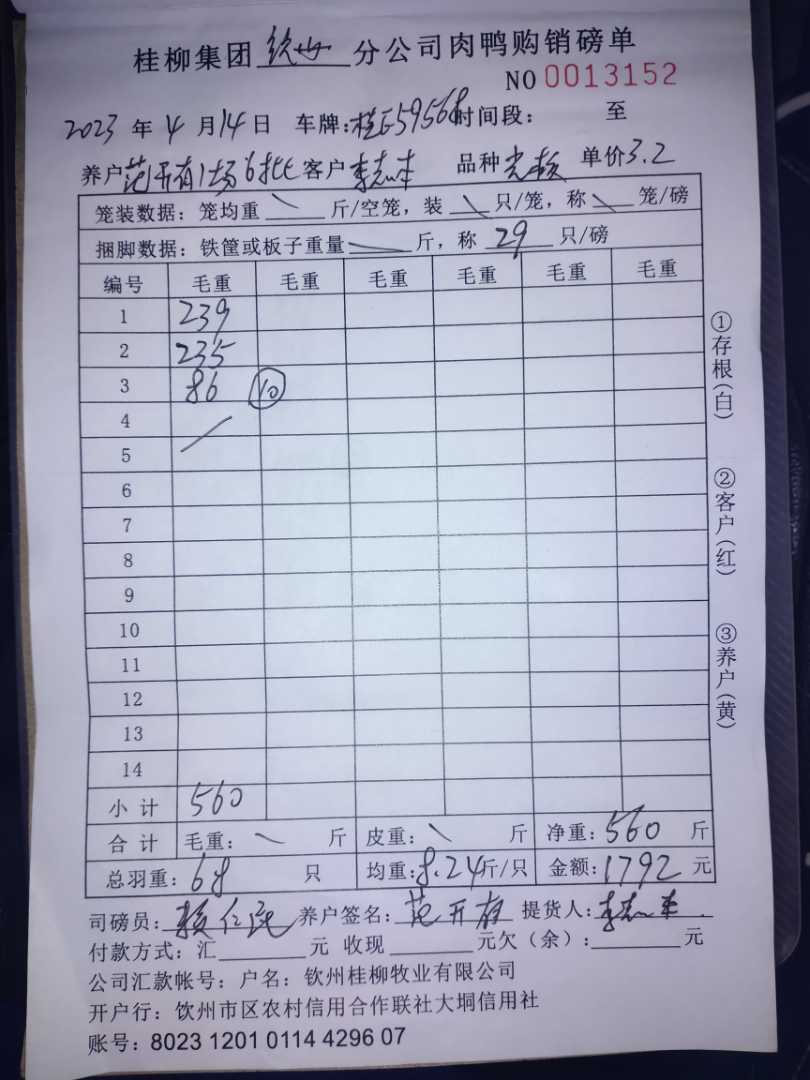 桂柳集团 钦州 分公司肉鸭购销磅单
NO 0013152
2023 年 4 月 14 日 车牌: 桂E59568 时间段: 至
养户 范开有1场6批 客户 李志本 品种 单价 3.2
笼装数据: 笼均重 \ 斤/空笼, 装 \ 只/笼, 称 \ 笼/磅
捆脚数据: 铁筐或板子重量 \ 斤, 称 29 只/磅
编号 毛重 毛重 毛重 毛重 毛重 毛重
1 239
2 235
3 86 ⑩
4
5
6
7
8
9
10
11
12
13
14
小计 560
合计 毛重: \ 斤 皮重: \ 斤 净重: 560 斤
总羽重: 68 只 均重: 8.24 斤/只 金额: 1792 元
司磅员: 养户签名: 范开有 提货人: 李志本
付款方式: 汇______元 收现______元欠(余):______元
公司汇款帐号: 户名: 钦州桂柳牧业有限公司
开户行: 饮州市区农村信用合作联社大垌信用社
账号: 8023 1201 0114 4296 07
①存根(白)
②客户(红)
③养户(黄)